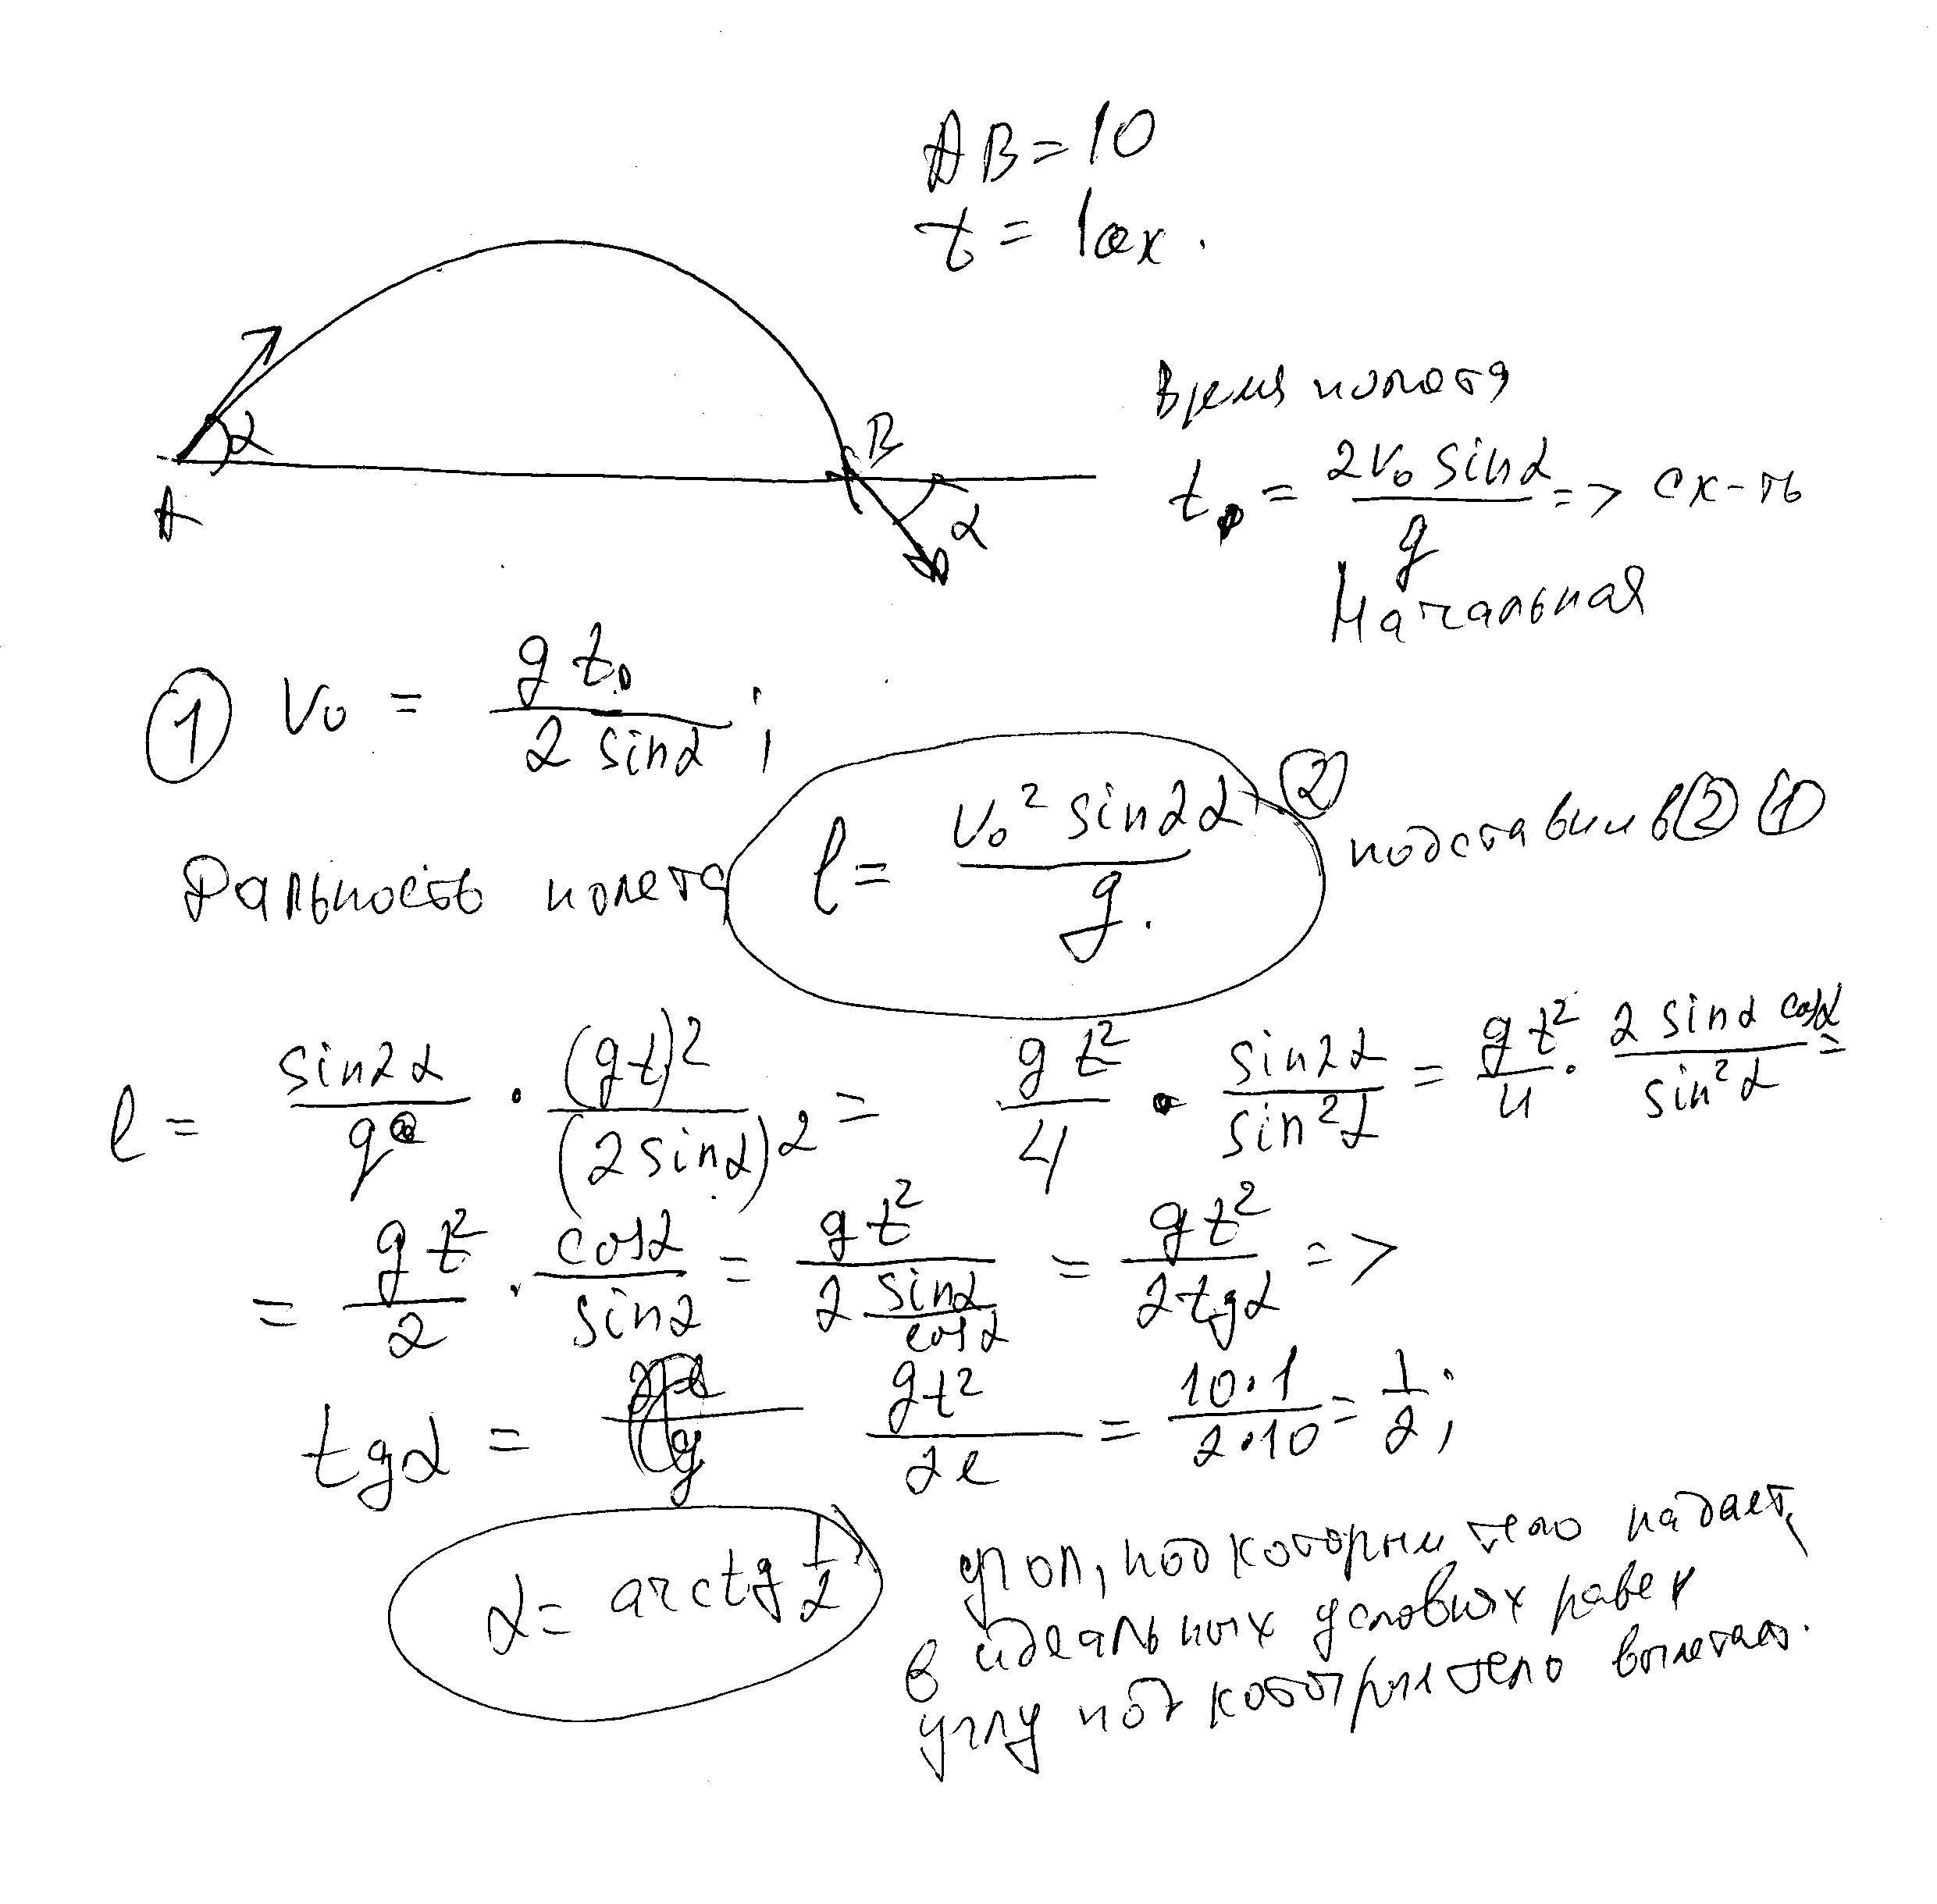 AB = 10
t = 1сек.
α
B
A
α
Время полета
t₀ = 2v₀ sinα / g => ск-ть
Начальная
① V₀ = g t₀ / 2 sinα ;
Дальность полета l = v₀² sin2α / g. ② подставим в ② ①
l = sin2α / g · (gt)² / (2 sinα)² = g t² / 4 · sin2α / sin²α = g t² / 4 · 2 sinα cosα / sin²α =
= g t² / 2 · cosα / sinα = g t² / 2 sinα/cosα = g t² / 2 tgα =>
tgα = gt² / 2l = 10·1 / 2·10 = 1/2 ;
α = arctg 1/2
угол, под которым тело падает,
в идеальных условиях равен
углу под которым тело вылетает.